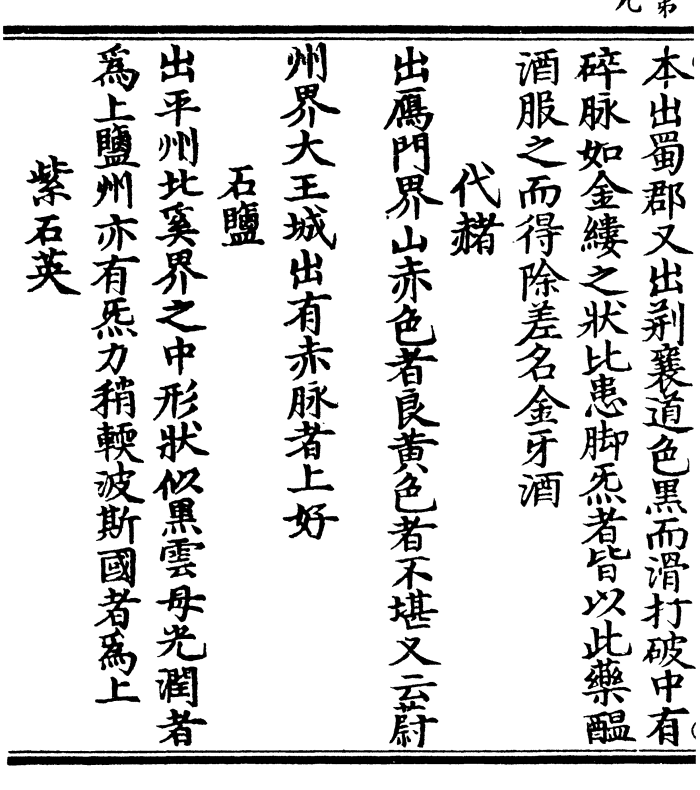 本出蜀郡又出荊襄道色黒而滑打破中有
碎脉如金縷之狀比患脚炁者皆以此藥醖
酒服之而得除差名金牙酒
代赭
出鴈門界山赤色者良黄色者不堪又云蔚
州界大王城出有赤脉者上好
石鹽
出平州北奚界之中形狀似黒雲母光潤者
為上鹽州亦有炁力稍輭波斯國者為上
紫石英